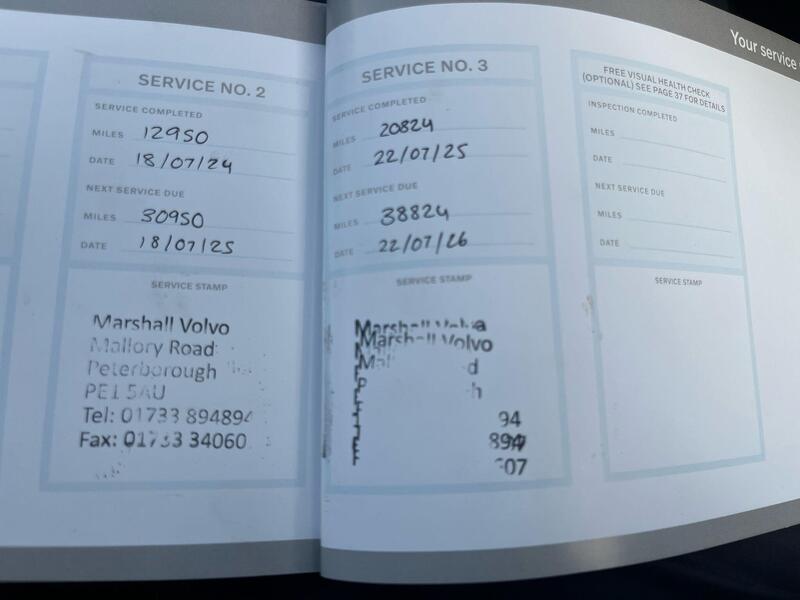 Your service
SERVICE NO. 2
SERVICE COMPLETED
MILES 12950
DATE 18/07/24
NEXT SERVICE DUE
MILES 30950
DATE 18/07/25
SERVICE STAMP
Marshall Volvo
Mallory Road
Peterborough
PE1 5AU
Tel: 01733 894894
Fax: 01733 34060
SERVICE NO. 3
SERVICE COMPLETED
MILES 20824
DATE 22/07/25
NEXT SERVICE DUE
MILES 38824
DATE 22/07/26
SERVICE STAMP
Marshall Volvo
Marshall Volvo
94
894
07
FREE VISUAL HEALTH CHECK
(OPTIONAL) SEE PAGE 37 FOR DETAILS
INSPECTION COMPLETED
MILES
DATE
NEXT SERVICE DUE
MILES
DATE
SERVICE STAMP